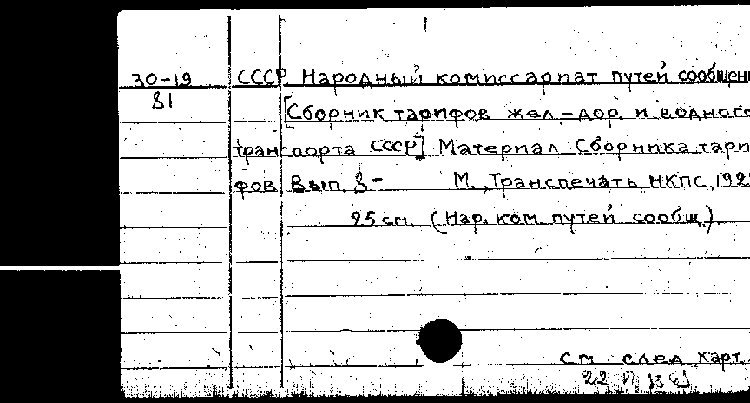 30-19 СССР. Народный комиссариат путей сообщени
81 [Сборник тарифов жел.-дор. и водного
транспорта СССР] Материал Сборника тари
фов Вып. 8- М., Транспечать НКПС, 192
25 см. (Нар. ком. путей сообщ.)
см след карт.